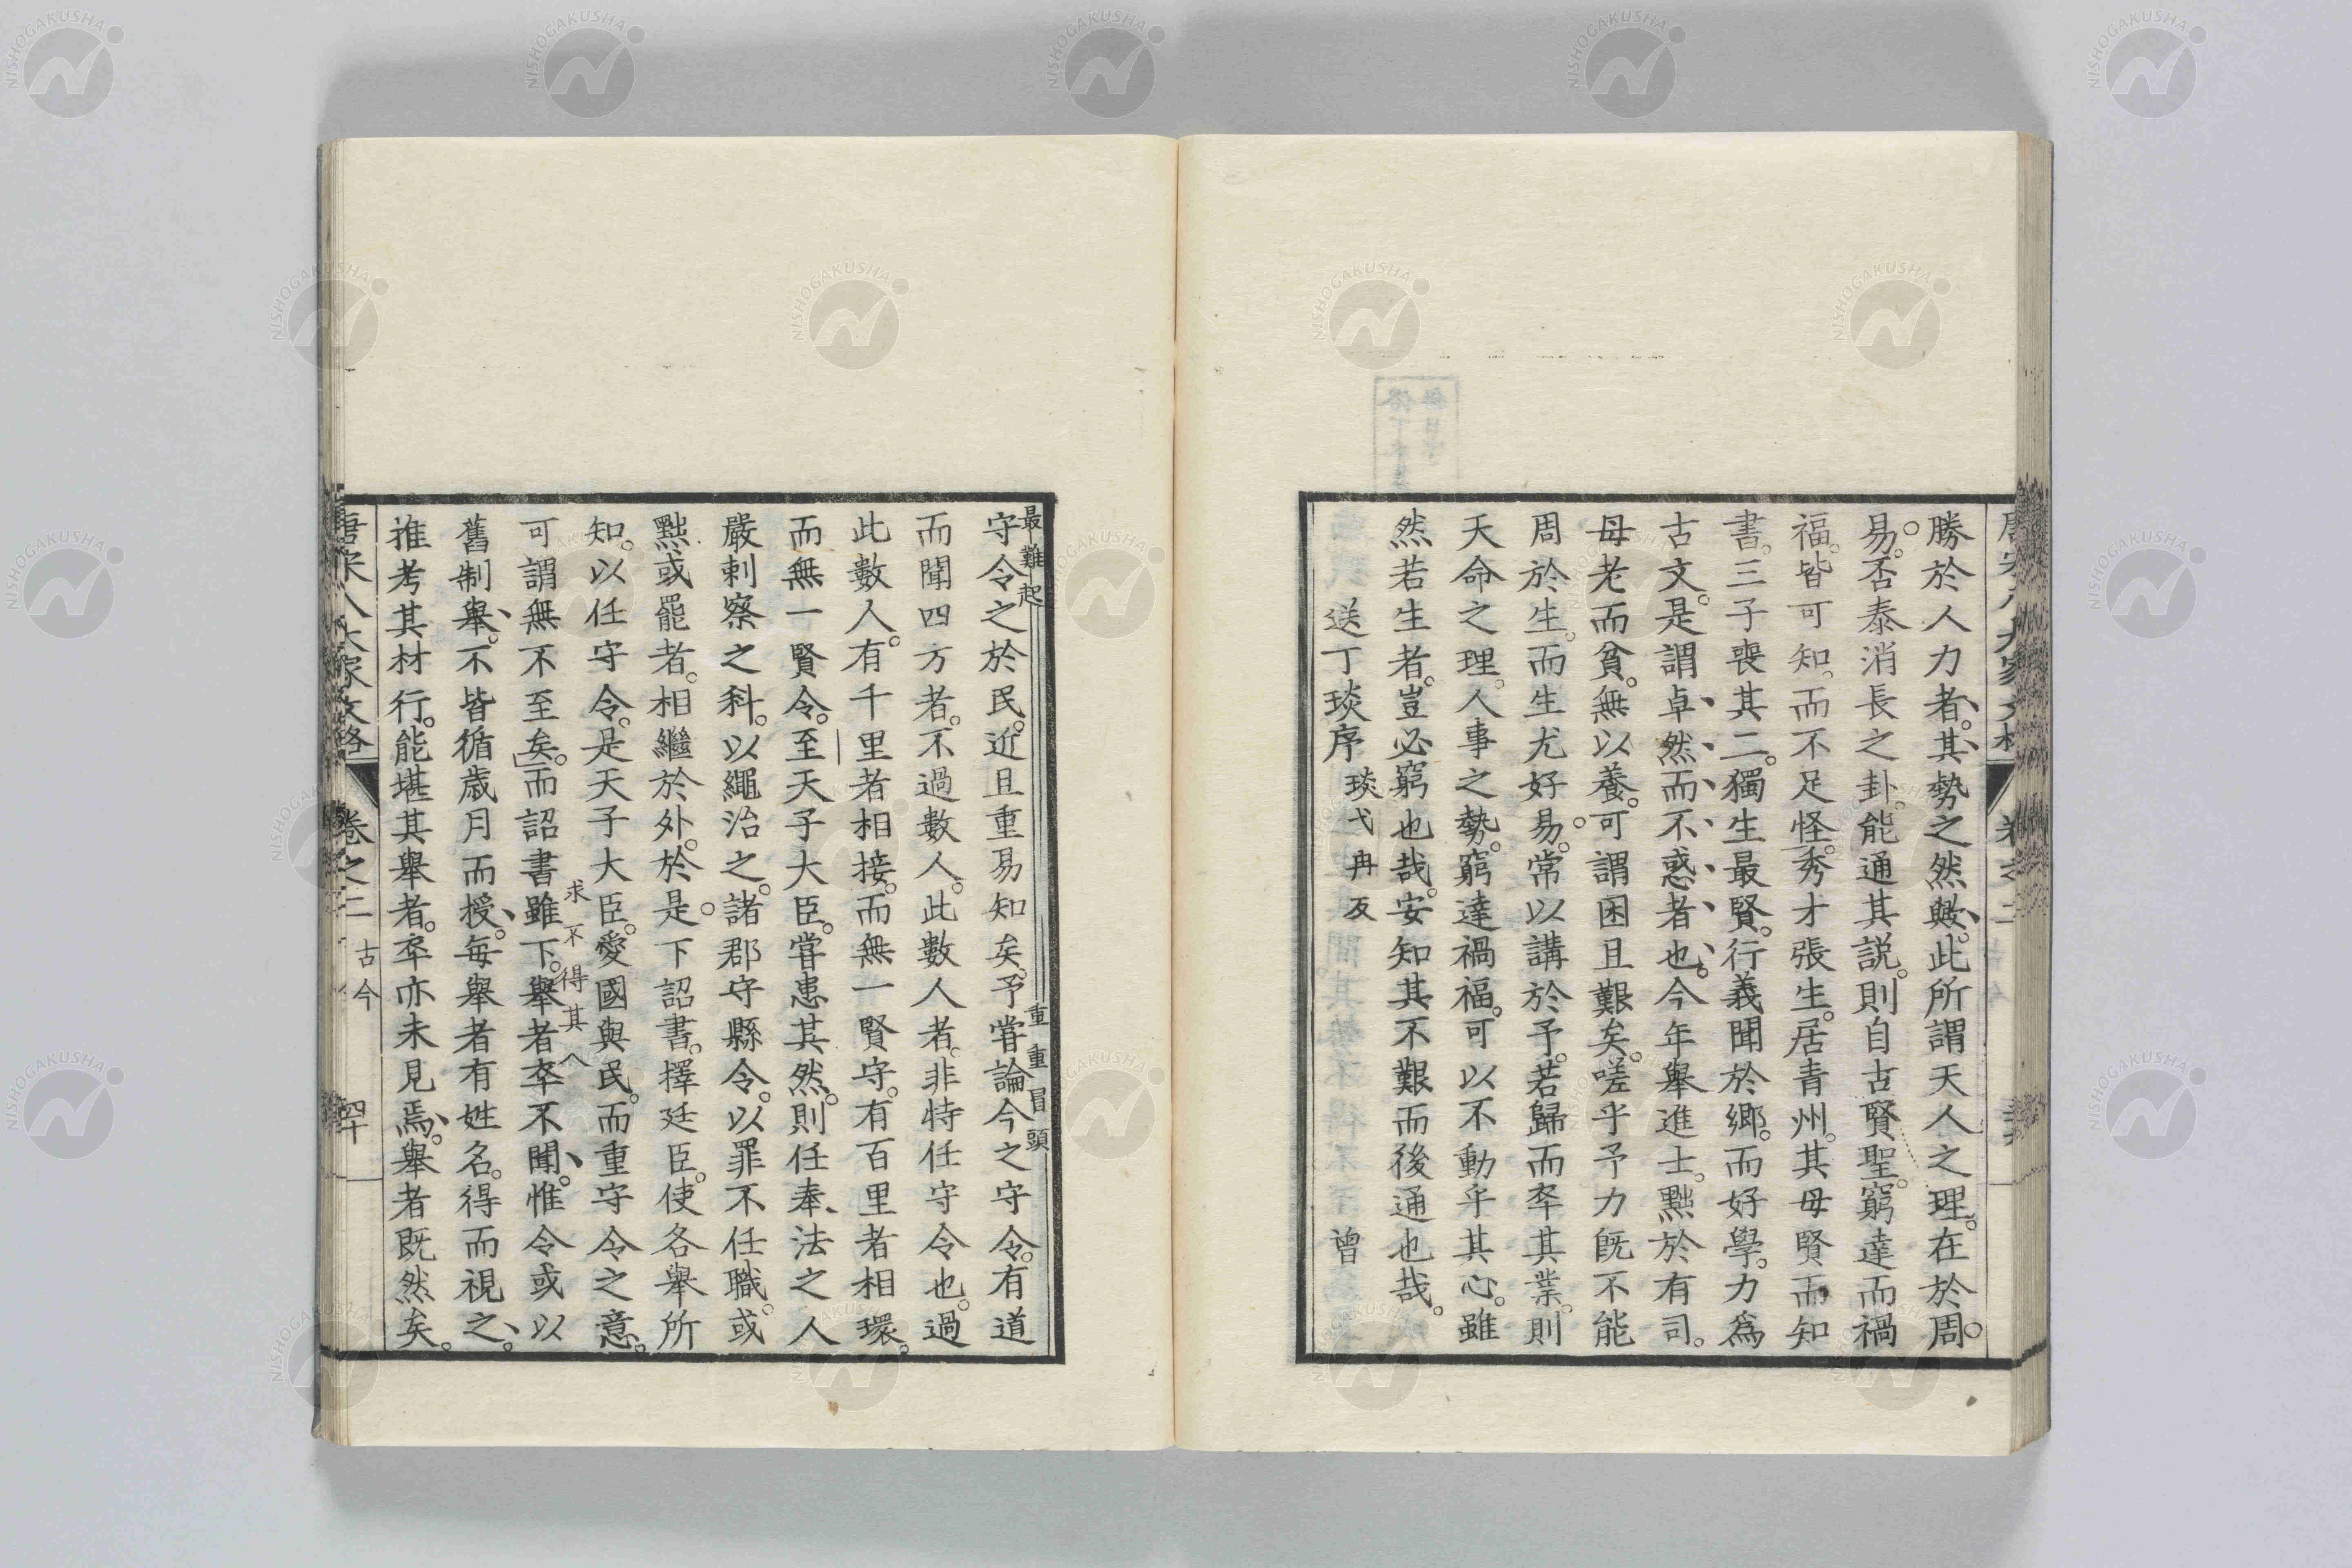 勝於人力者。其勢之然歟。此所謂天人之理。在於周
易。否泰消長之卦。能通其説。則自古賢聖。窮達而禍
福。皆可知。而不足怪。秀才張生。居青州。其母賢而知
書。三子喪其二。獨生最賢。行義聞於鄉。而好學。力爲
古文。是謂卓然而不惑者也。今年舉進士。黜於有司。
母老而貧。無以養。可謂困且艱矣。嗟乎予力既不能
周於生。而生尤好易。常以講於予。若歸而卒其業。則
天命之理。人事之勢。窮達禍福。可以不動乎其心。雖
然若生者。豈必窮也哉。安知其不艱而後通也哉。
送丁琰序 琰弋冉反 曾
最難起 重重冒頭
守令之於民。近且重易知矣。予嘗論今之守令。有道
而聞四方者。不過數人。此數人者。非特任守令也。過
此數人。有千里者相接。而無一賢守。有百里者相環。
而無一賢令。至天子大臣。嘗患其然。則任奉法之人
嚴刺察之科。以繩治之。諸郡守縣令。以罪不任職。或
黜或罷者。相繼於外。於是下詔書。擇廷臣。使各舉所
知。以任守令。是天子大臣。愛國與民。而重守令之意。
求不得其人
可謂無不至矣。而詔書雖下。舉者卒不聞。惟令或以
舊制舉。不皆循歲月而授。每舉者有姓名。得而視之。
推考其材行。能堪其舉者。卒亦未見焉。舉者既然矣。
唐宋八大家文格 卷之二 古今 四十